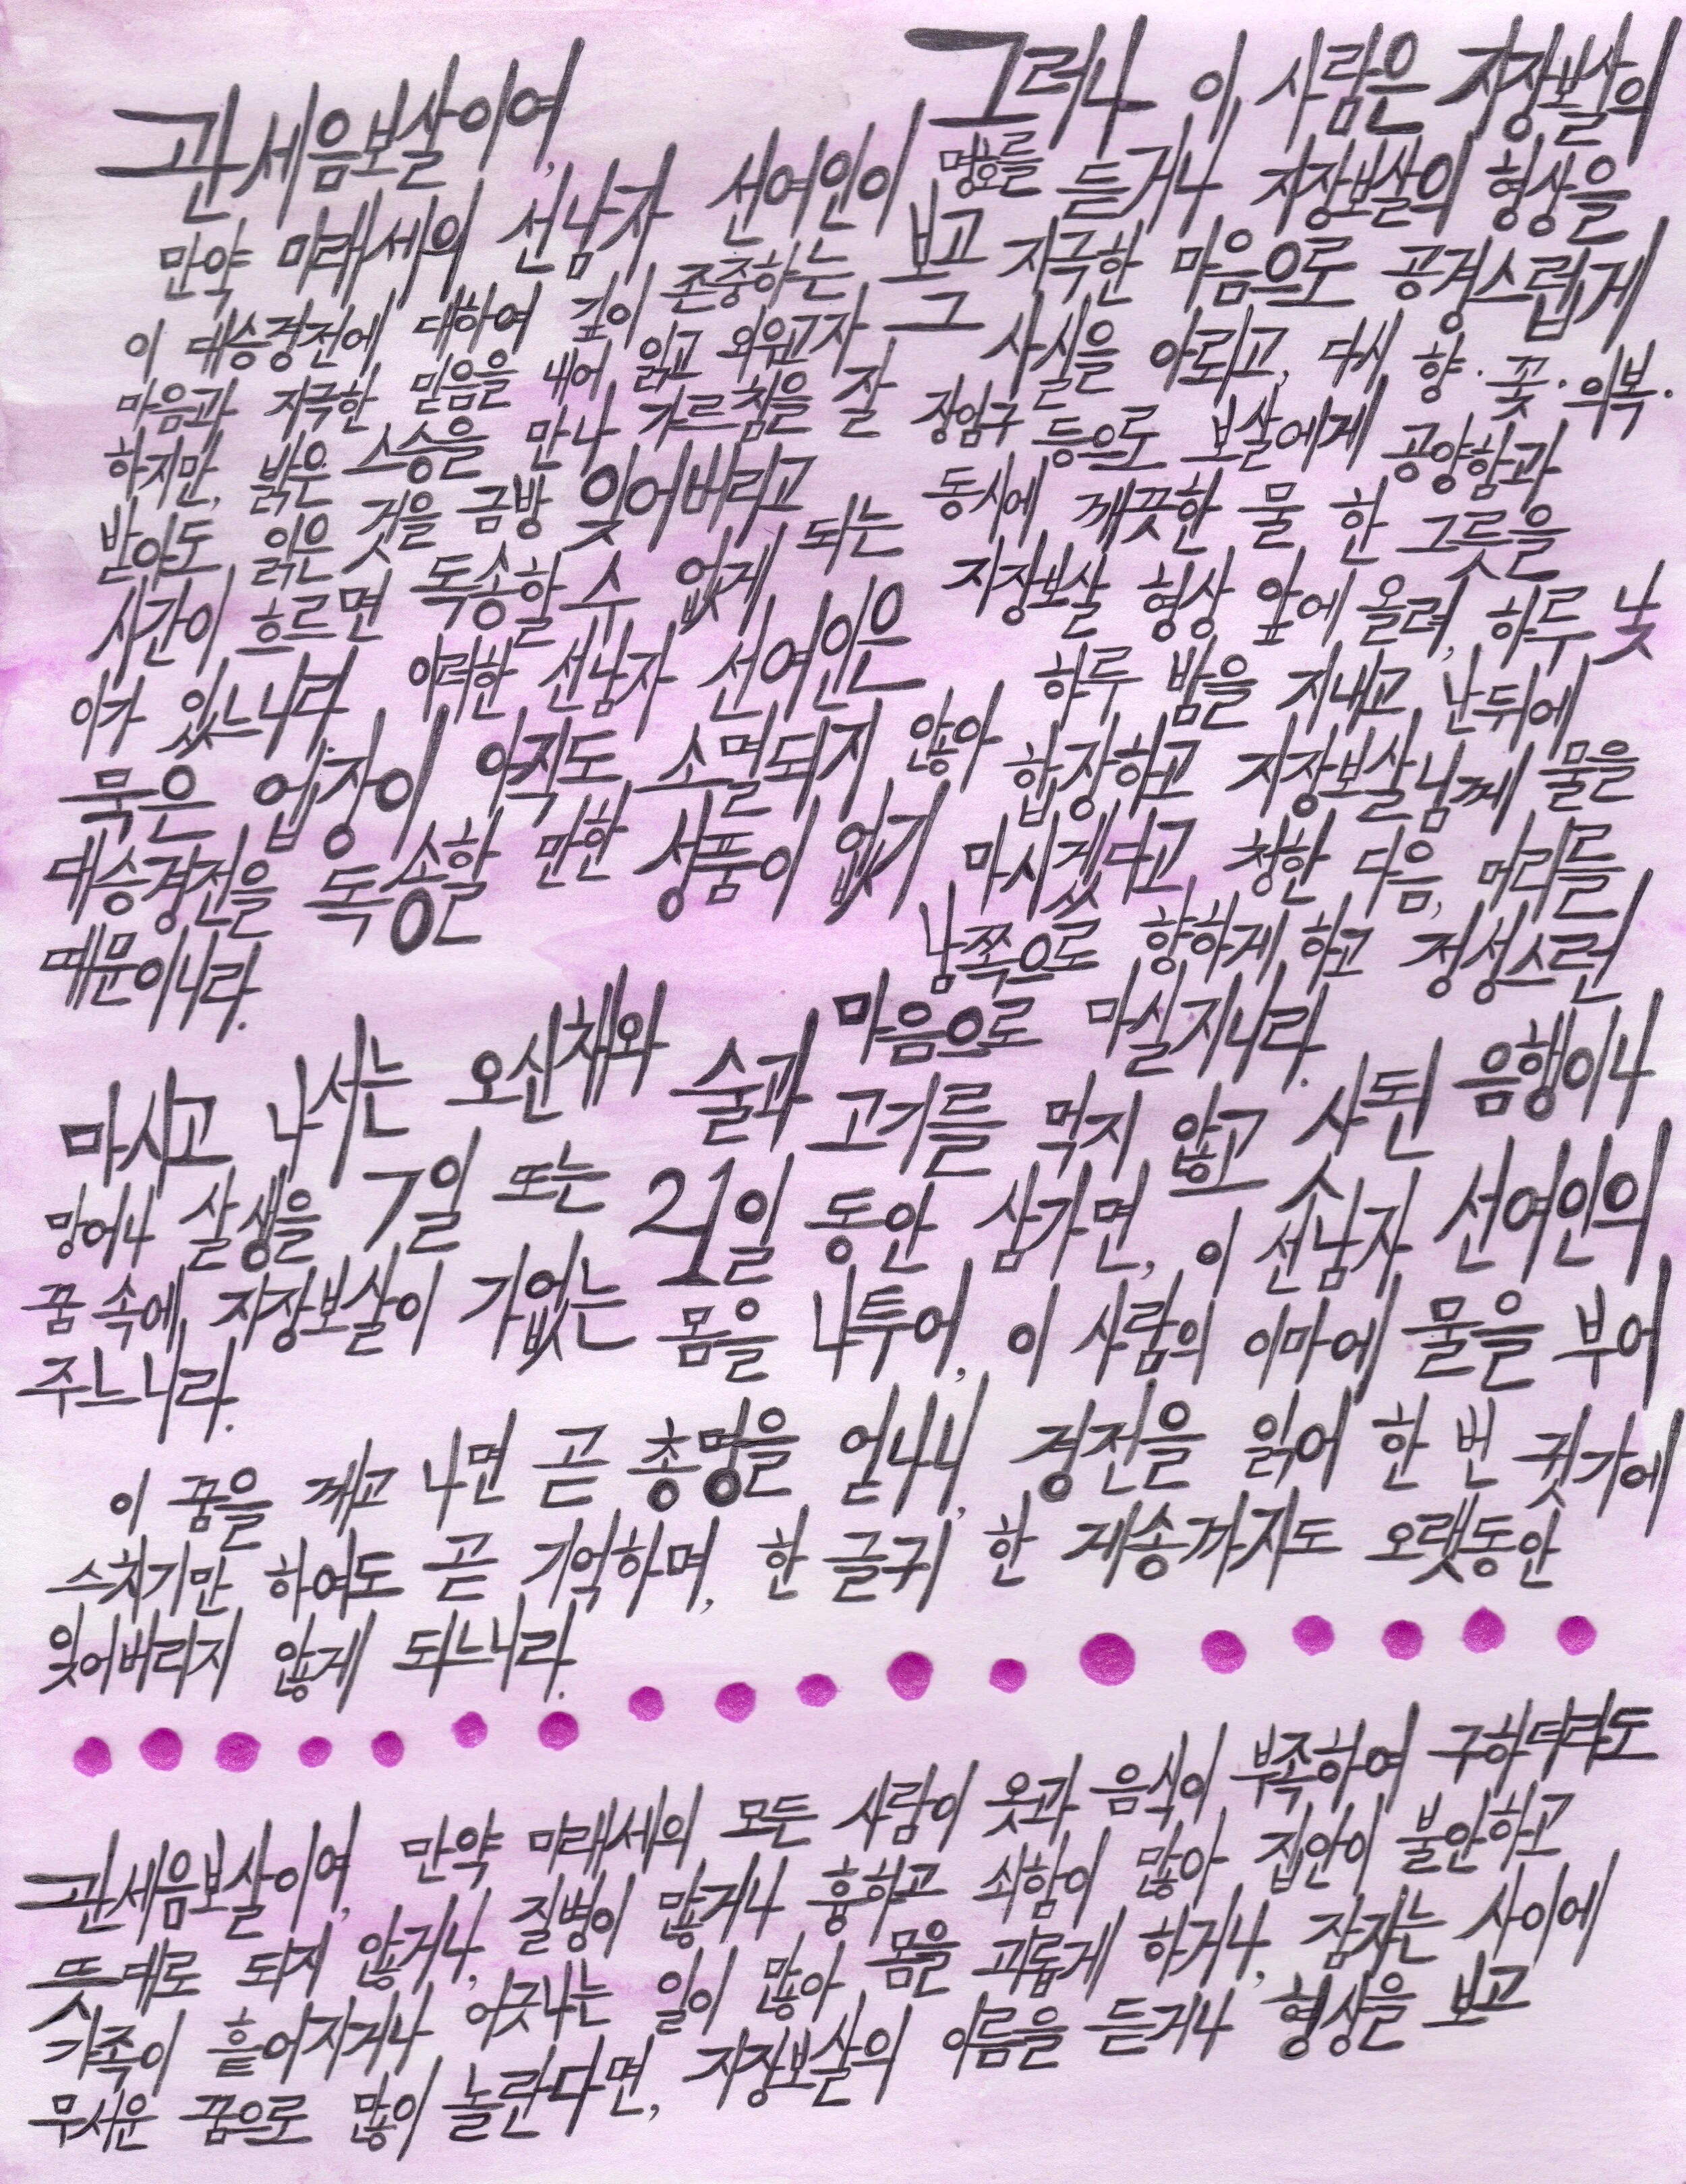 관세음보살이여,
만약 미래세의 선남자 선여인이
이 대승경전에 대하여 깊이 존중하는
마음과 지극한 믿음을 내어 읽고 외우고자
하지만, 밝은 스승을 만나 가르침을 잘
받아도 읽은 것을 금방 잊어버리고
시간이 흐르면 독송할 수 없게 되는
이가 있느니라. 이러한 선남자 선여인은
묵은 업장이 아직도 소멸되지 않아
대승경전을 독송할 만한 성품이 없기
때문이니라.
그러나 이 사람은 지장보살의
명호를 듣거나 지장보살의 형상을
보고 지극한 마음으로 공경스럽게
그 사실을 아뢰고, 다시 향·꽃·의복·
장엄구 등으로 보살에게 공양함과
동시에 깨끗한 물 한 그릇을
지장보살 형상 앞에 올려, 하루 낮
하루 밤을 지내고 난뒤에
합장하고 지장보살님께 물을
마시겠다고 청한 다음, 머리를
남쪽으로 향하게 하고 정성스런
마음으로 마실지니라.
마시고 나서는 오신채와 술과 고기를 먹지 않고 사된 음행이나
망어나 살생을 7일 또는 21일 동안 삼가면, 이 선남자 선여인의
꿈 속에 지장보살이 가없는 몸을 나투어, 이 사람의 이마에 물을 부어
주느니라.
이 꿈을 깨고 나면 곧 총명을 얻나니, 경전을 읽어 한 번 귓가에
스치기만 하여도 곧 기억하며, 한 글귀 한 게송까지도 오랫동안
잊어버리지 않게 되느니라.
관세음보살이여, 만약 미래세의 모든 사람이 옷과 음식이 부족하여 구하더라도
뜻대로 되지 않거나, 질병이 많거나 흉하고 쇠함이 많아 집안이 불안하고
가족이 흩어지거나 어긋나는 일이 많아 몸을 괴롭게 하거나, 잠자는 사이에
무서운 꿈으로 많이 놀란다면, 지장보살의 이름을 듣거나 형상을 보고